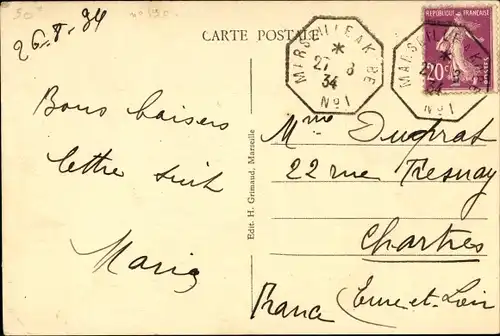 26-8-34
CARTE POSTALE
MARSEILLE A K BE
*
27 8
34
No 1
MARSEILLE A K BE
*
27 8
34
No 1
REPUBLIQUE FRANCAISE
20c
POSTES
Bons baisers
lettre suit
Marie
Edit. H. Grimaud, Marseille
Mme Duprat
22 rue Fresnay
Chartres
Eure-et-Loir
France